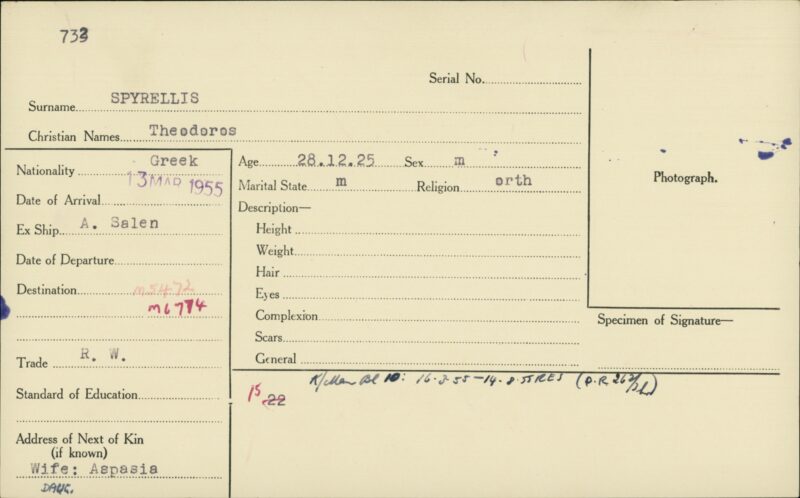 733
Serial No.
Surname SPYRELLIS
Christian Names Theodoros
Nationality Greek
13 MAR 1955
Date of Arrival
Ex Ship A. Salen
Date of Departure
Destination m5472
m6774
Trade R. W.
Standard of Education
Address of Next of Kin
(if known)
Wife: Aspasia
DAUG.
Age 28.12.25 Sex m
Marital State m Religion orth
Description—
Height
Weight
Hair
Eyes
Complexion
Scars
General
Photograph.
Specimen of Signature—
15 22
K/Man Bl 10: 16.3.55-14.8.55 RES